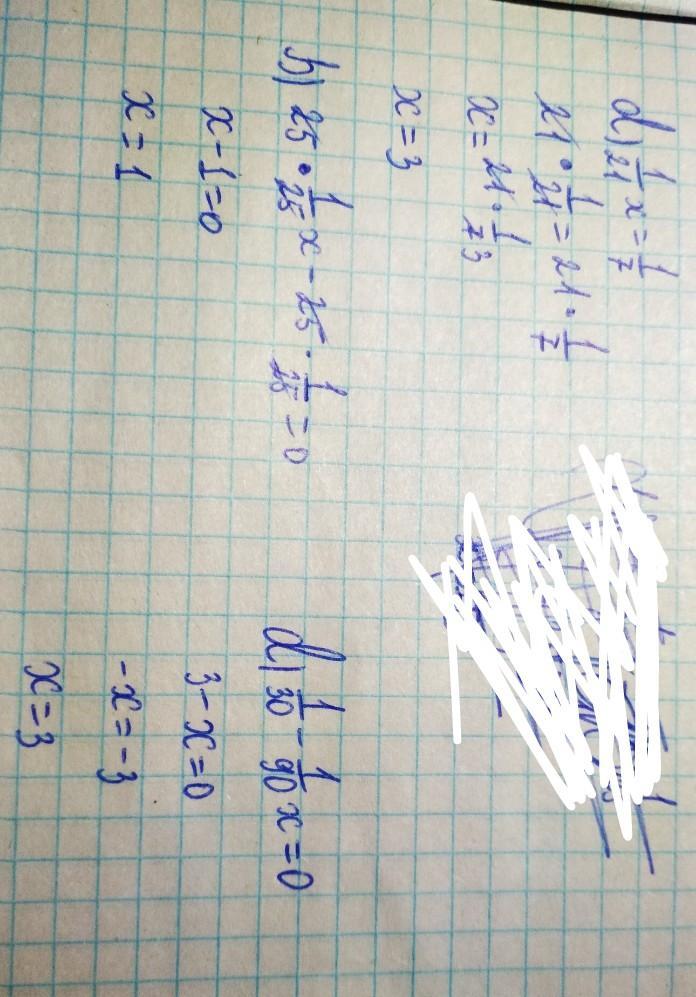 d) 1/21 x = 1/7
21 · 1/21 = 21 · 1/7
x = 21 · 1/7 3
x = 3
b) 25 · 1/25 x - 25 · 1/25 = 0
x - 1 = 0
x = 1
d) 1/30 - 1/90 x = 0
3 - x = 0
-x = -3
x = 3